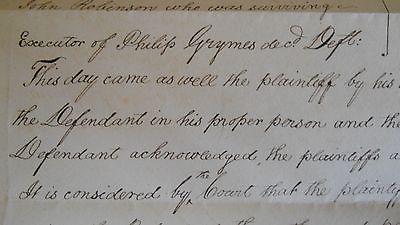 John Robinson who was surviving
Executor of Philip Grymes dec.d Deft:
This day came as well the plaintiff by his
the Defendant in his proper person and the
Defendant acknowledged, the plaintiffs a
It is considered by the Court that the plainty